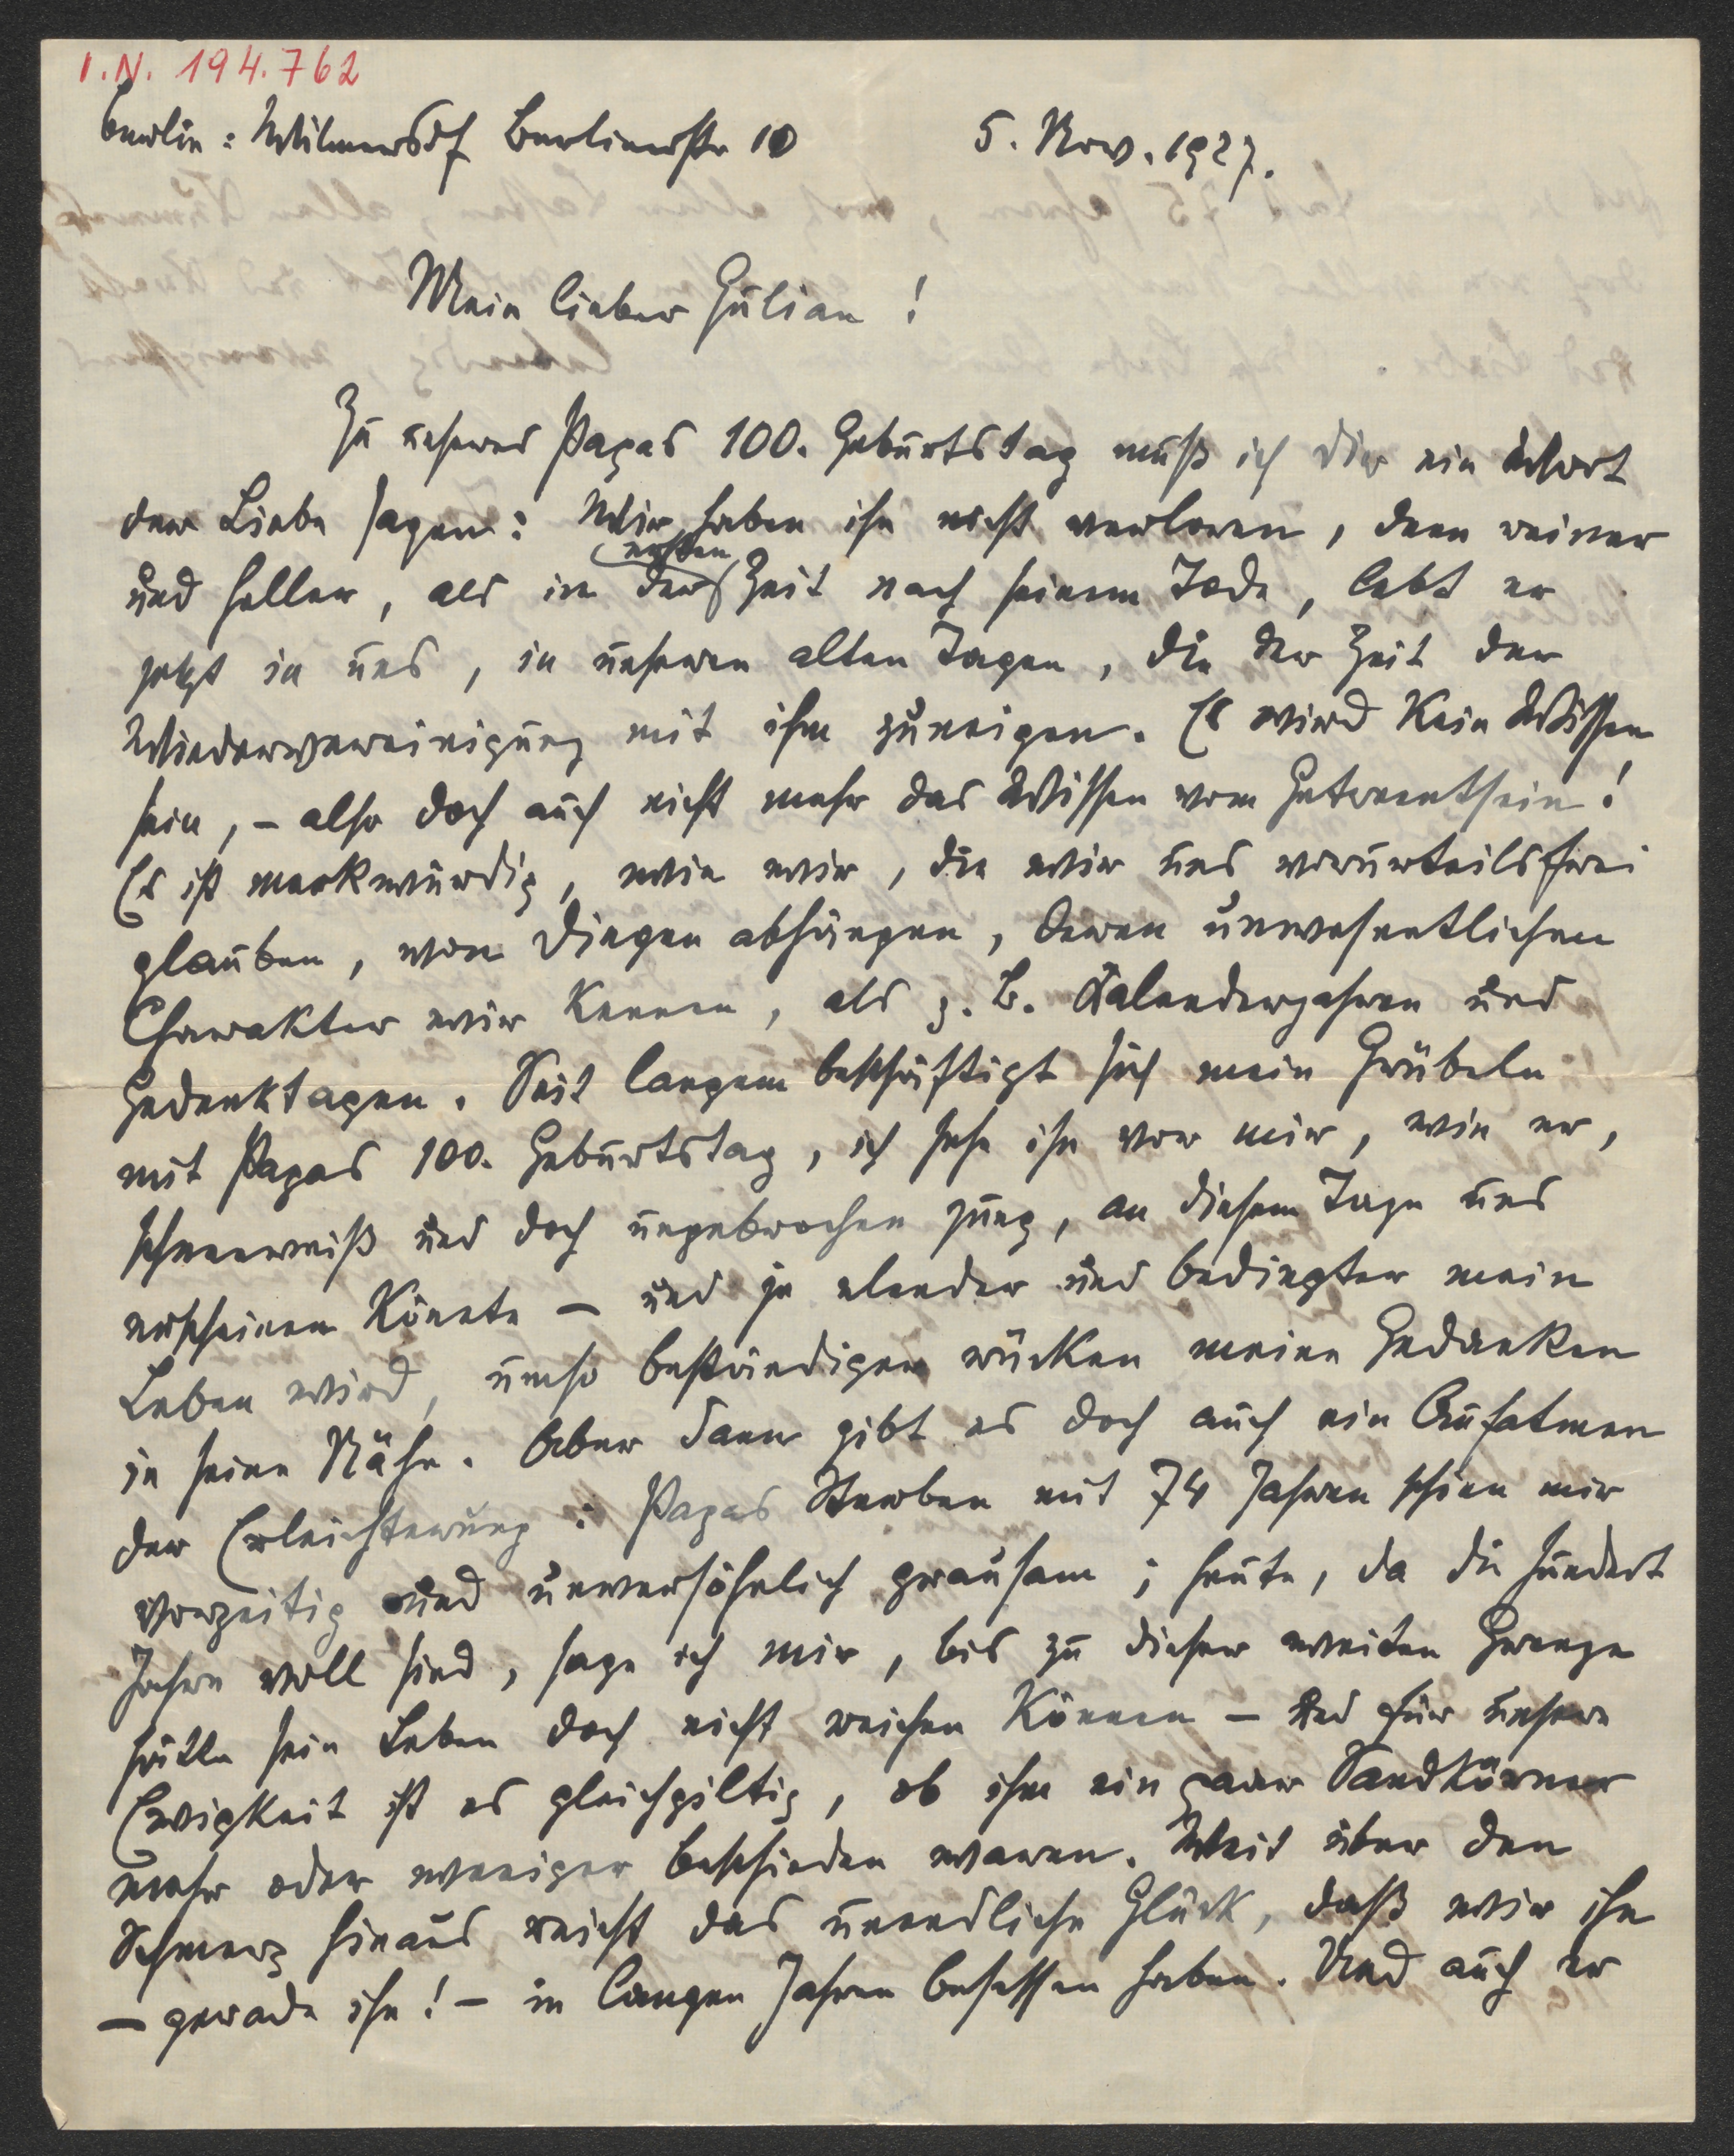 I.N. 194.762
Berlin: Wilmersdf Berlinerstr 10 5. Nov. 1927.
Mein lieber Julian!
Zu unseres Papas 100. Geburtstag muß ich Dir ein Wort
der Liebe sagen: Wir haben ihn nicht verloren, denn reiner
ersten
und heller, als in der Zeit nach seinem Tode, lebt er
jetzt in uns, in unseren alten Tagen, die der Zeit der
Wiedervereinigung mit ihm zuneigen. Es wird kein Wissen
sein, – also doch auch nicht mehr das Wissen vom Getrenntsein!
Es ist merkwürdig, wie wir, die wir uns vorurteilsfrei
glauben, von Dingen abhängen, deren unwesentlichen
Charakter wir kennen, als z. B. Kalenderjahren und
Gedenktagen. Seit langem beschäftigt sich mein Grübeln
mit Papas 100. Geburtstag, ich sehe ihn vor mir, wie er,
schneeweiß und doch ungebrochen jung, an diesem Tage uns
erscheinen könnte – und je elender und bedingter mein
Leben wird, umso beständiger rücken meine Gedanken
in seine Nähe. Aber dann gibt es doch auch ein Aufatmen
der Erleichterung: Papas Sterben mit 74 Jahren schien mir
vorzeitig und unversöhnlich grausam; heute, da die hundert
Jahre voll sind, sage ich mir, bis zu dieser weiten Grenze
hätte sein Leben doch nicht reichen können – und für unsere
Ewigkeit ist es gleichgiltig, ob ihm ein paar Sandkörner
mehr oder weniger beschieden waren. Weit über den
Schmerz hinaus reicht das unendliche Glück, daß wir ihn
– gerade ihn! – in langen Jahren besessen haben. Und auch er